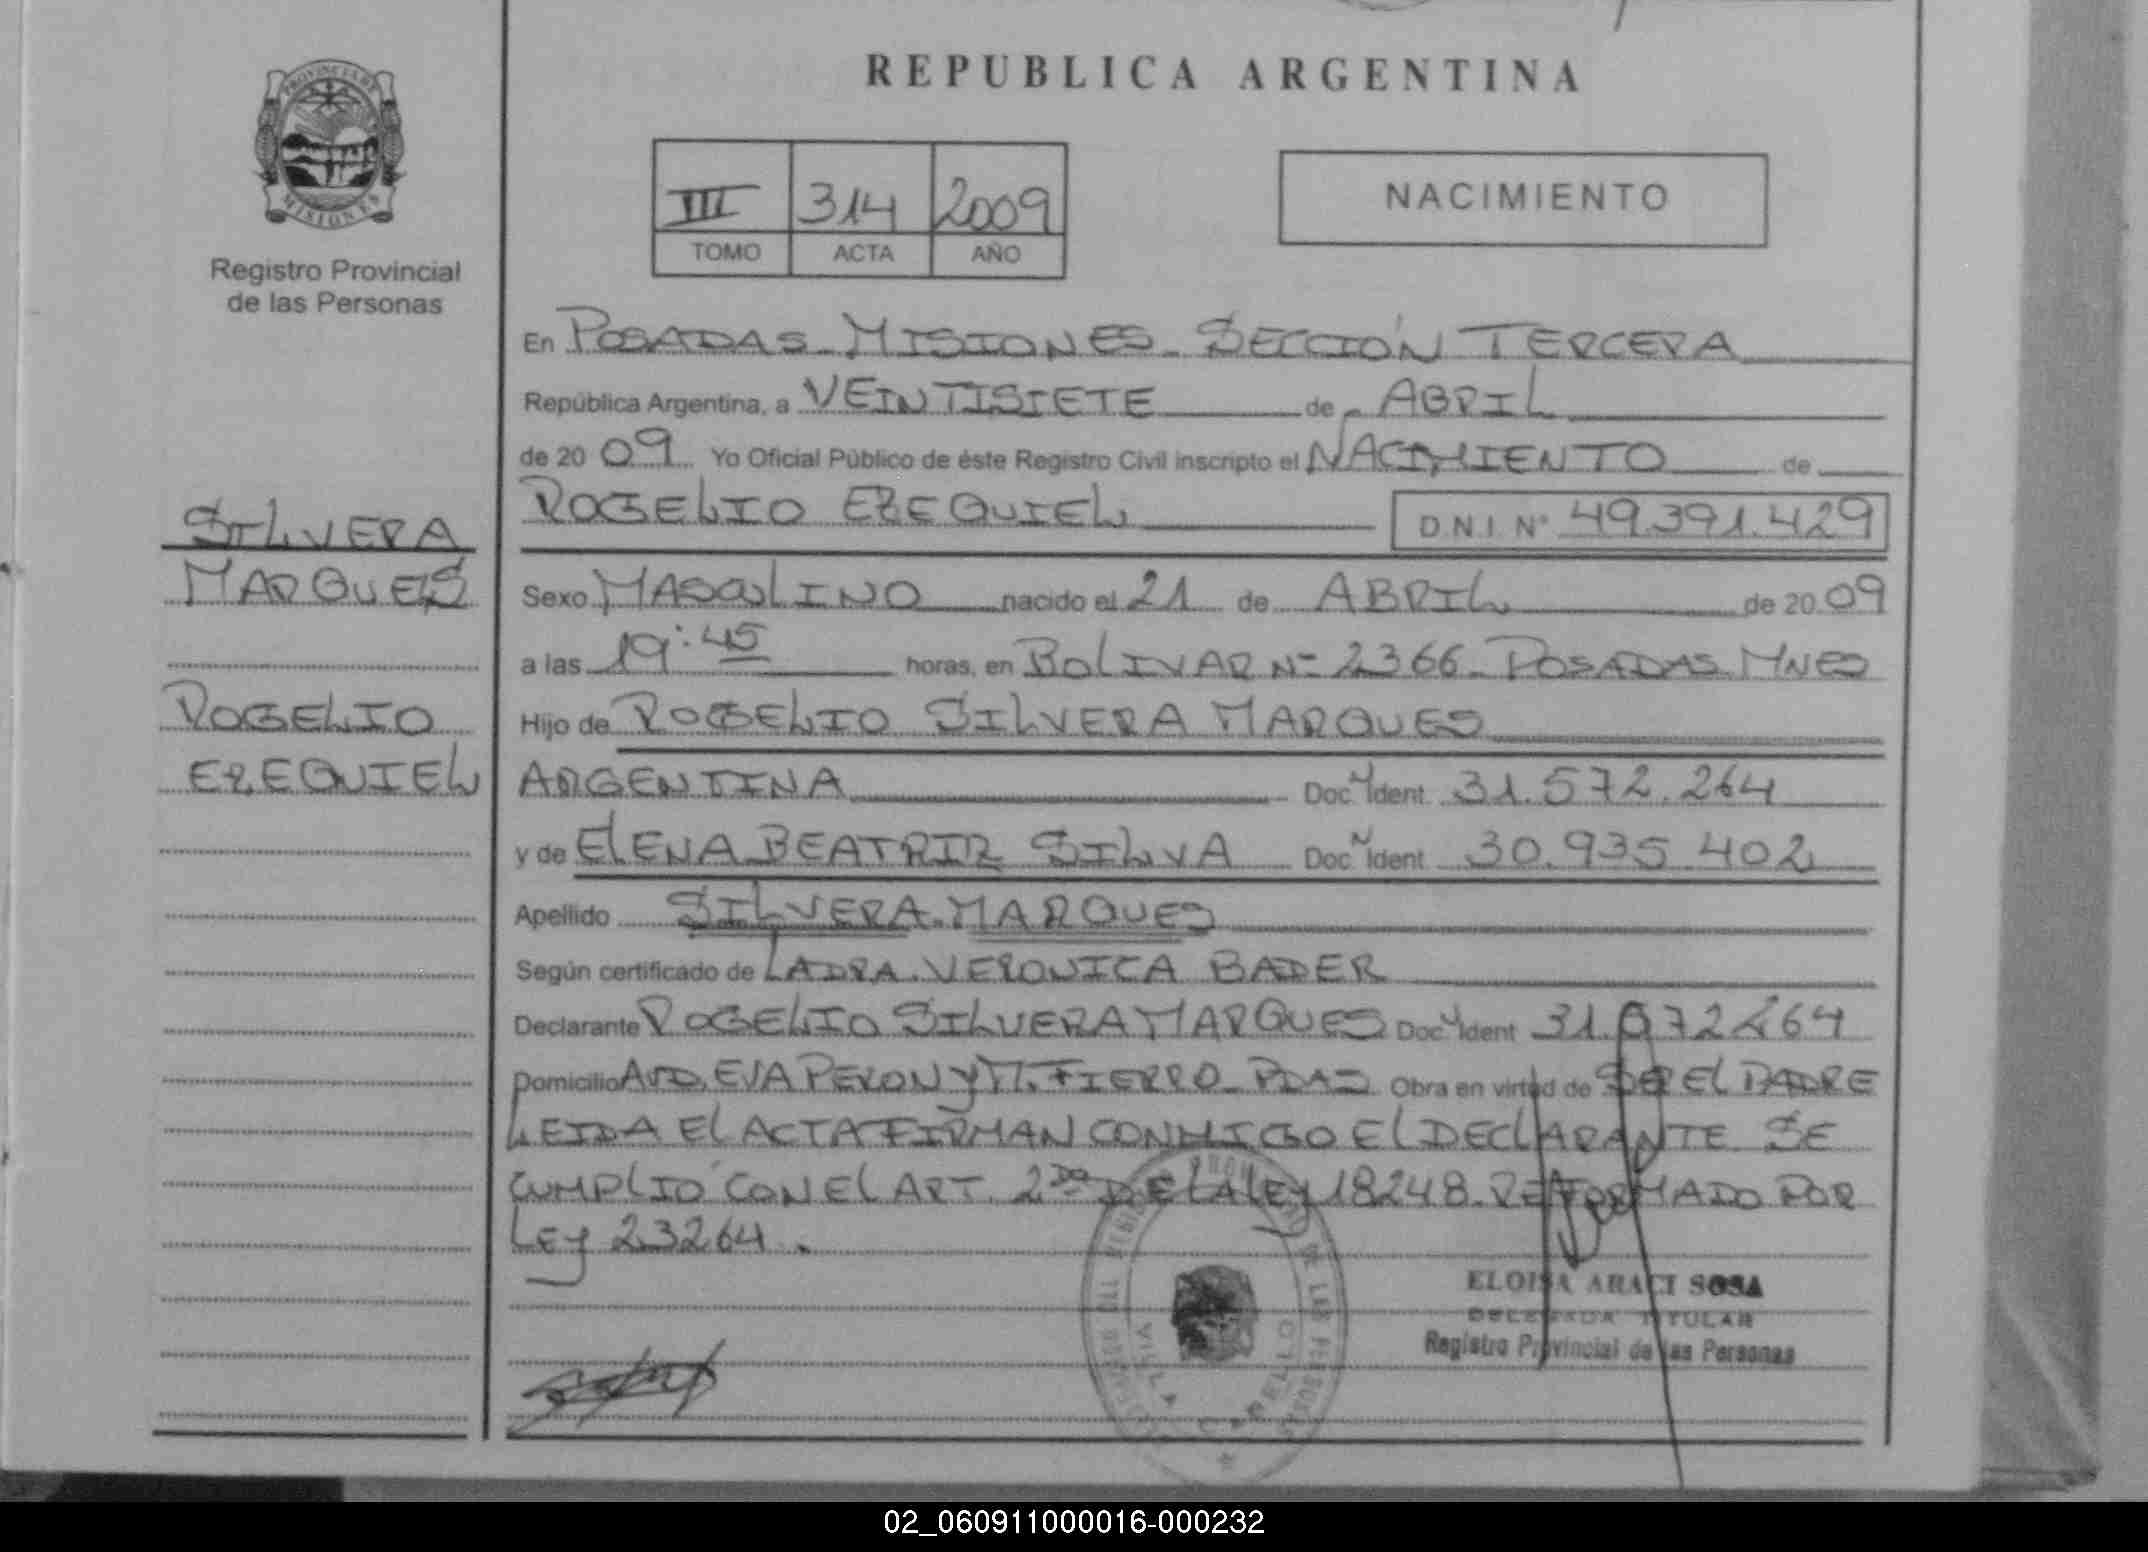 REPUBLICA ARGENTINA
PROVINCIA DE
MISIONES
Registro Provincial
de las Personas
III 314 2009
TOMO ACTA AÑO
NACIMIENTO
En POSADAS - MISIONES - SECCIÓN TERCERA
República Argentina, a VEINTISIETE de ABRIL
de 20 09 Yo Oficial Público de éste Registro Civil inscripto el NACIMIENTO de
ROGELIO EZEQUIEL D.N.I. N° 49.391.429
SILVERA
MARQUES
ROGELIO
EZEQUIEL
Sexo MASCULINO nacido el 21 de ABRIL de 20 09
a las 19:45 horas, en BOLIVAR Nº 2366 - POSADAS. MNES
Hijo de ROGELIO SILVERA MARQUES
ARGENTINA Doc. Ident. 31.572.264
y de ELENA BEATRIZ SILVA Doc. Ident. 30.935.402
Apellido SILVERA MARQUES
Según certificado de LA DRA. VERONICA BADER
Declarante ROGELIO SILVERA MARQUES Doc. Ident 31.572264
Domicilio AVD. EVA PERON y M. FIERRO - PDAS Obra en virtud de SER EL PADRE
LEIDA EL ACTA FIRMAN CONMIGO EL DECLARANTE SE
CUMPLIO CON EL ART. 2do DE LA LEY 18248. REFORMADO POR
LEY 23264.
ELOISA ARACI SOSA
DELEGADA TITULAR
Registro Provincial de las Personas
02_060911000016-000232